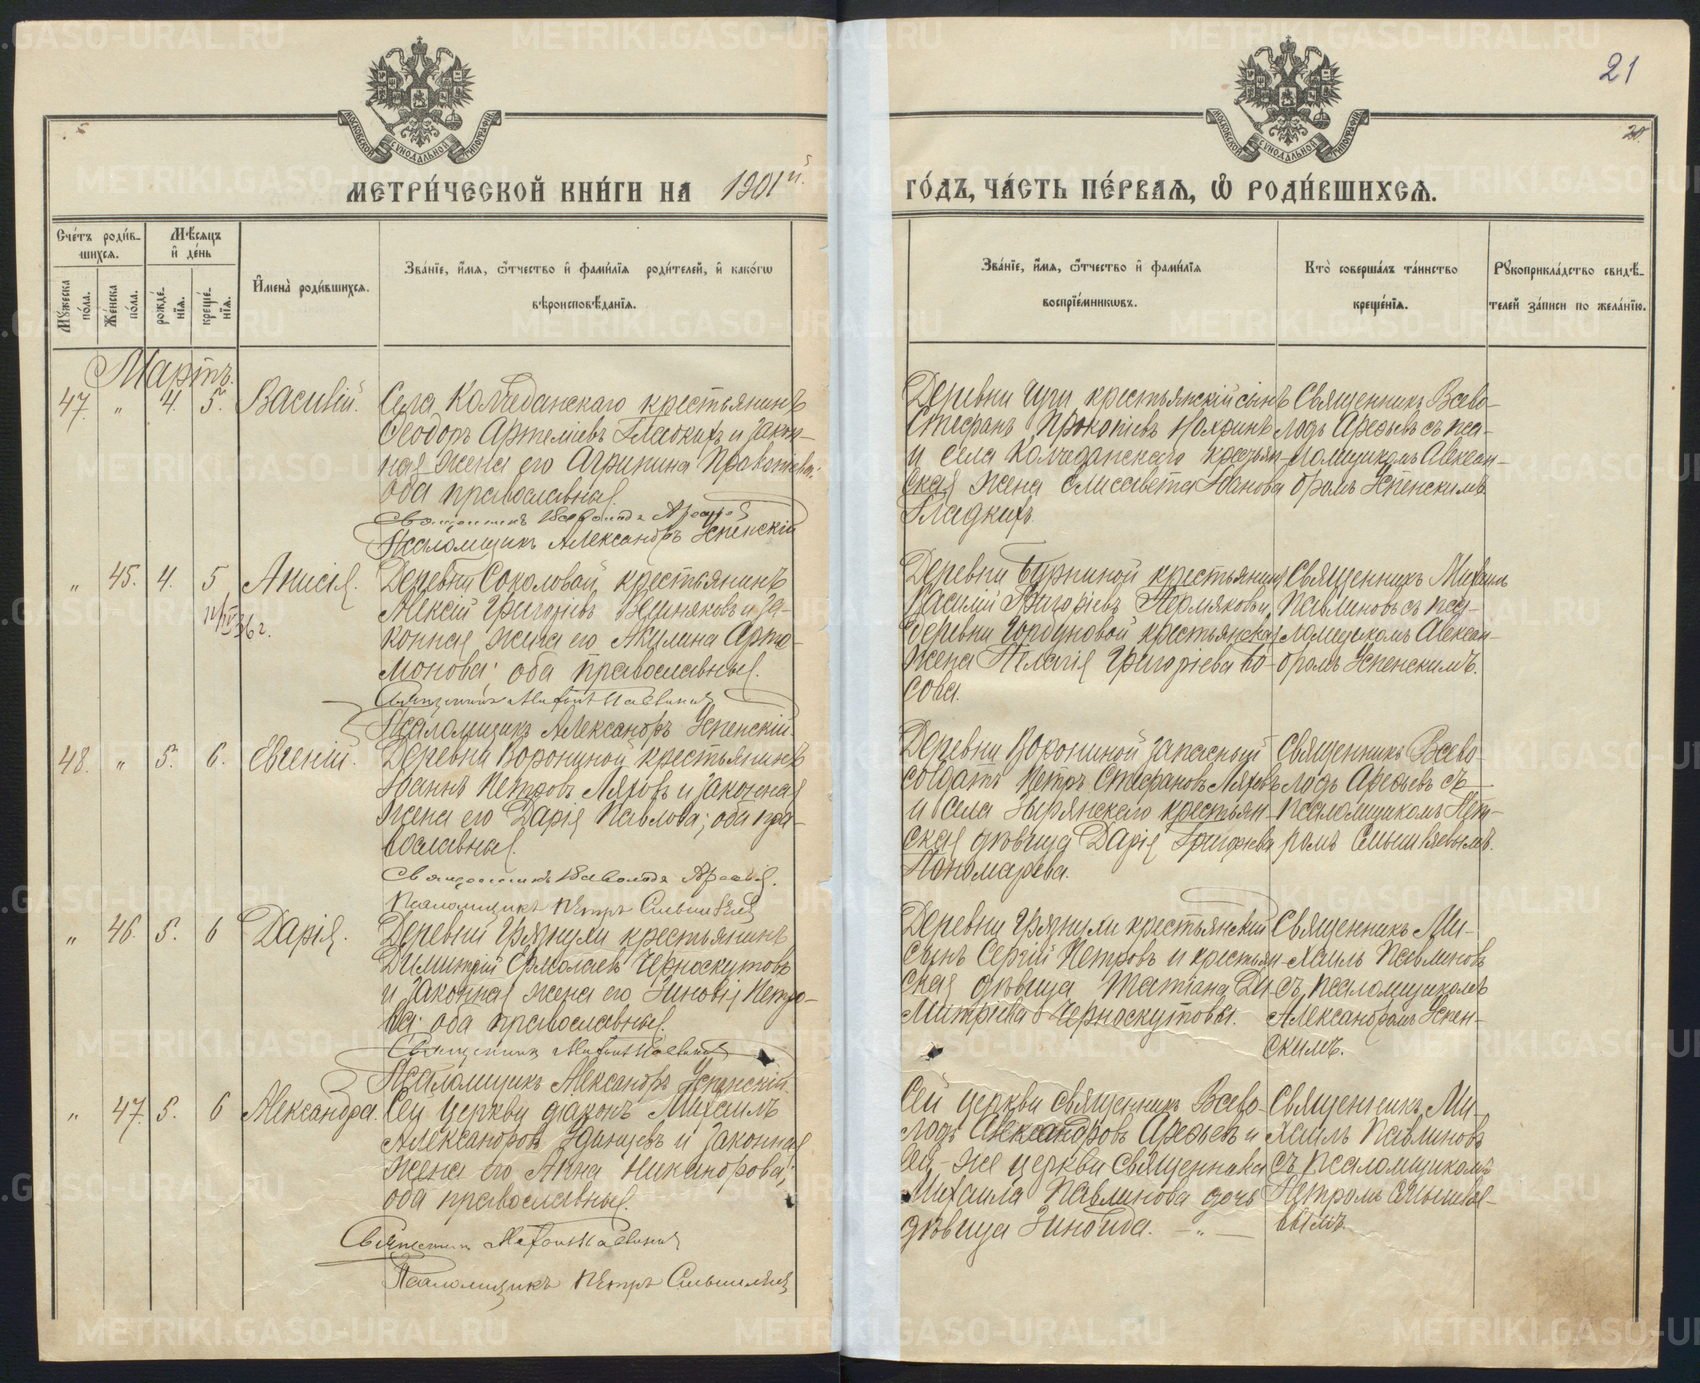 21
20
МОСКОВСКОЙ СѴНОДАЛЬНОЙ ТИПОГРАФІИ
МОСКОВСКОЙ СѴНОДАЛЬНОЙ ТИПОГРАФІИ
МЕТРИ́ЧЕСКОЙ КНИ́ГИ НА 1901й.
ГО́ДЪ, ЧА́СТЬ ПЕ́РВАѦ, Ѡ҆ РОДИ́ВШИХСѦ.
Сче́тъ роди́в-
шихсѧ.
Мѣ́сѧцъ
и҆ де́нь
Мꙋ́жеска
по́ла.
Же́нска
по́ла.
рожде́-
нїѧ.
креще́-
нїѧ.
И҆мена̀ роди́вшихсѧ.
Зва́нїе, и҆́мѧ, ѻ҆́тчество и҆ фами́лїѧ роди́телей, и҆ како́гѡ
вѣроисповѣ́данїѧ.
Зва́нїе, и҆́мѧ, ѻ҆́тчество и҆ фами́лїѧ
воспрїе́мникѡвъ.
Кто̀ соверша́лъ та́инство
креще́нїѧ.
Рꙋкоприкла́дство свидѣ́-
телей за́писи по жела́нїю.
Мартъ.
47. " 4. 5. Василій.
Села Колчеданскаго крестьянинъ
Ѳеодоръ Артеміевъ Гладкихъ и закон-
ная жена его Агрипина Прокопьева:
оба православные
Священникъ Всеволодъ Арефьев
Псаломщикъ Александръ Успенскій
Деревни крестьянскій сынъ
Стефанъ Прокопіевъ
и села Колчеданскаго крестьян-
ская жена Елисавета Иванова
Гладкихъ
Священникъ Всево-
лодъ Арефьевъ съ пса-
ломщикомъ Алексан-
дромъ Успенскимъ
" 45. 4. 5 Анисія.
Деревни Соколовой крестьянинъ
Алексій Григорьевъ и за-
конная жена его Акулина Арта-
монова; оба православные.
Священникъ Михаилъ Павлиновъ
Псаломщикъ Александръ Успенскій
Деревни Бурниной крестьянинъ
Василій Григорьевъ Пермяковъ и
деревни крестьянская
жена Пелагія Григорьева Бо-
сова.
Священникъ Михаилъ
Павлиновъ съ пса-
ломщикомъ Алексан-
дромъ Успенскимъ.
48. " 5. 6. Евгеній.
Деревни Ворониной крестьянинъ
Іоаннъ Петровъ Ляховъ и законная
жена его Дарія Павлова; оба пра-
вославные
Священникъ Всеволодъ Арефьев.
Псаломщикъ Петръ
Деревни Ворониной запасный
солдатъ Петръ Стефановъ Ляховъ
и села Зырянскаго крестьян-
ская дѣвица Дарія Григорьева
Пономарева.
Священникъ Всево-
лодъ Арефьевъ съ
псаломщикомъ Пет-
ромъ
" 46. 5. 6 Дарія.
Деревни Грязнухи крестьянинъ
Димитрій Ермолаевъ Черноскутовъ
и законная жена его Зиновія Петро-
ва: оба православные.
Священникъ Михаилъ Павлиновъ
Псаломщикъ Александръ Успенскій
Деревни Грязнухи крестьянскій
сынъ Сергій Петровъ и крестьян-
ская дѣвица Татіана Ди-
митріева Черноскутовы.
Священникъ Ми-
хаилъ Павлиновъ
съ псаломщикомъ
Александромъ Успен-
скимъ.
" 47. 5. 6 Александра.
Сей церкви діаконъ Михаилъ
Александровъ и законная
жена его Анна Никанорова;
оба православные.
Священникъ Михаилъ Павлиновъ
Псаломщикъ Петръ
Сей церкви священникъ Всево-
лодъ Александровъ Арефьевъ и
сей-же церкви священника
Михаила Павлинова дочь
дѣвица Зинаида. — " —
Священникъ Ми-
хаилъ Павлиновъ
съ псаломщикомъ
Петромъ